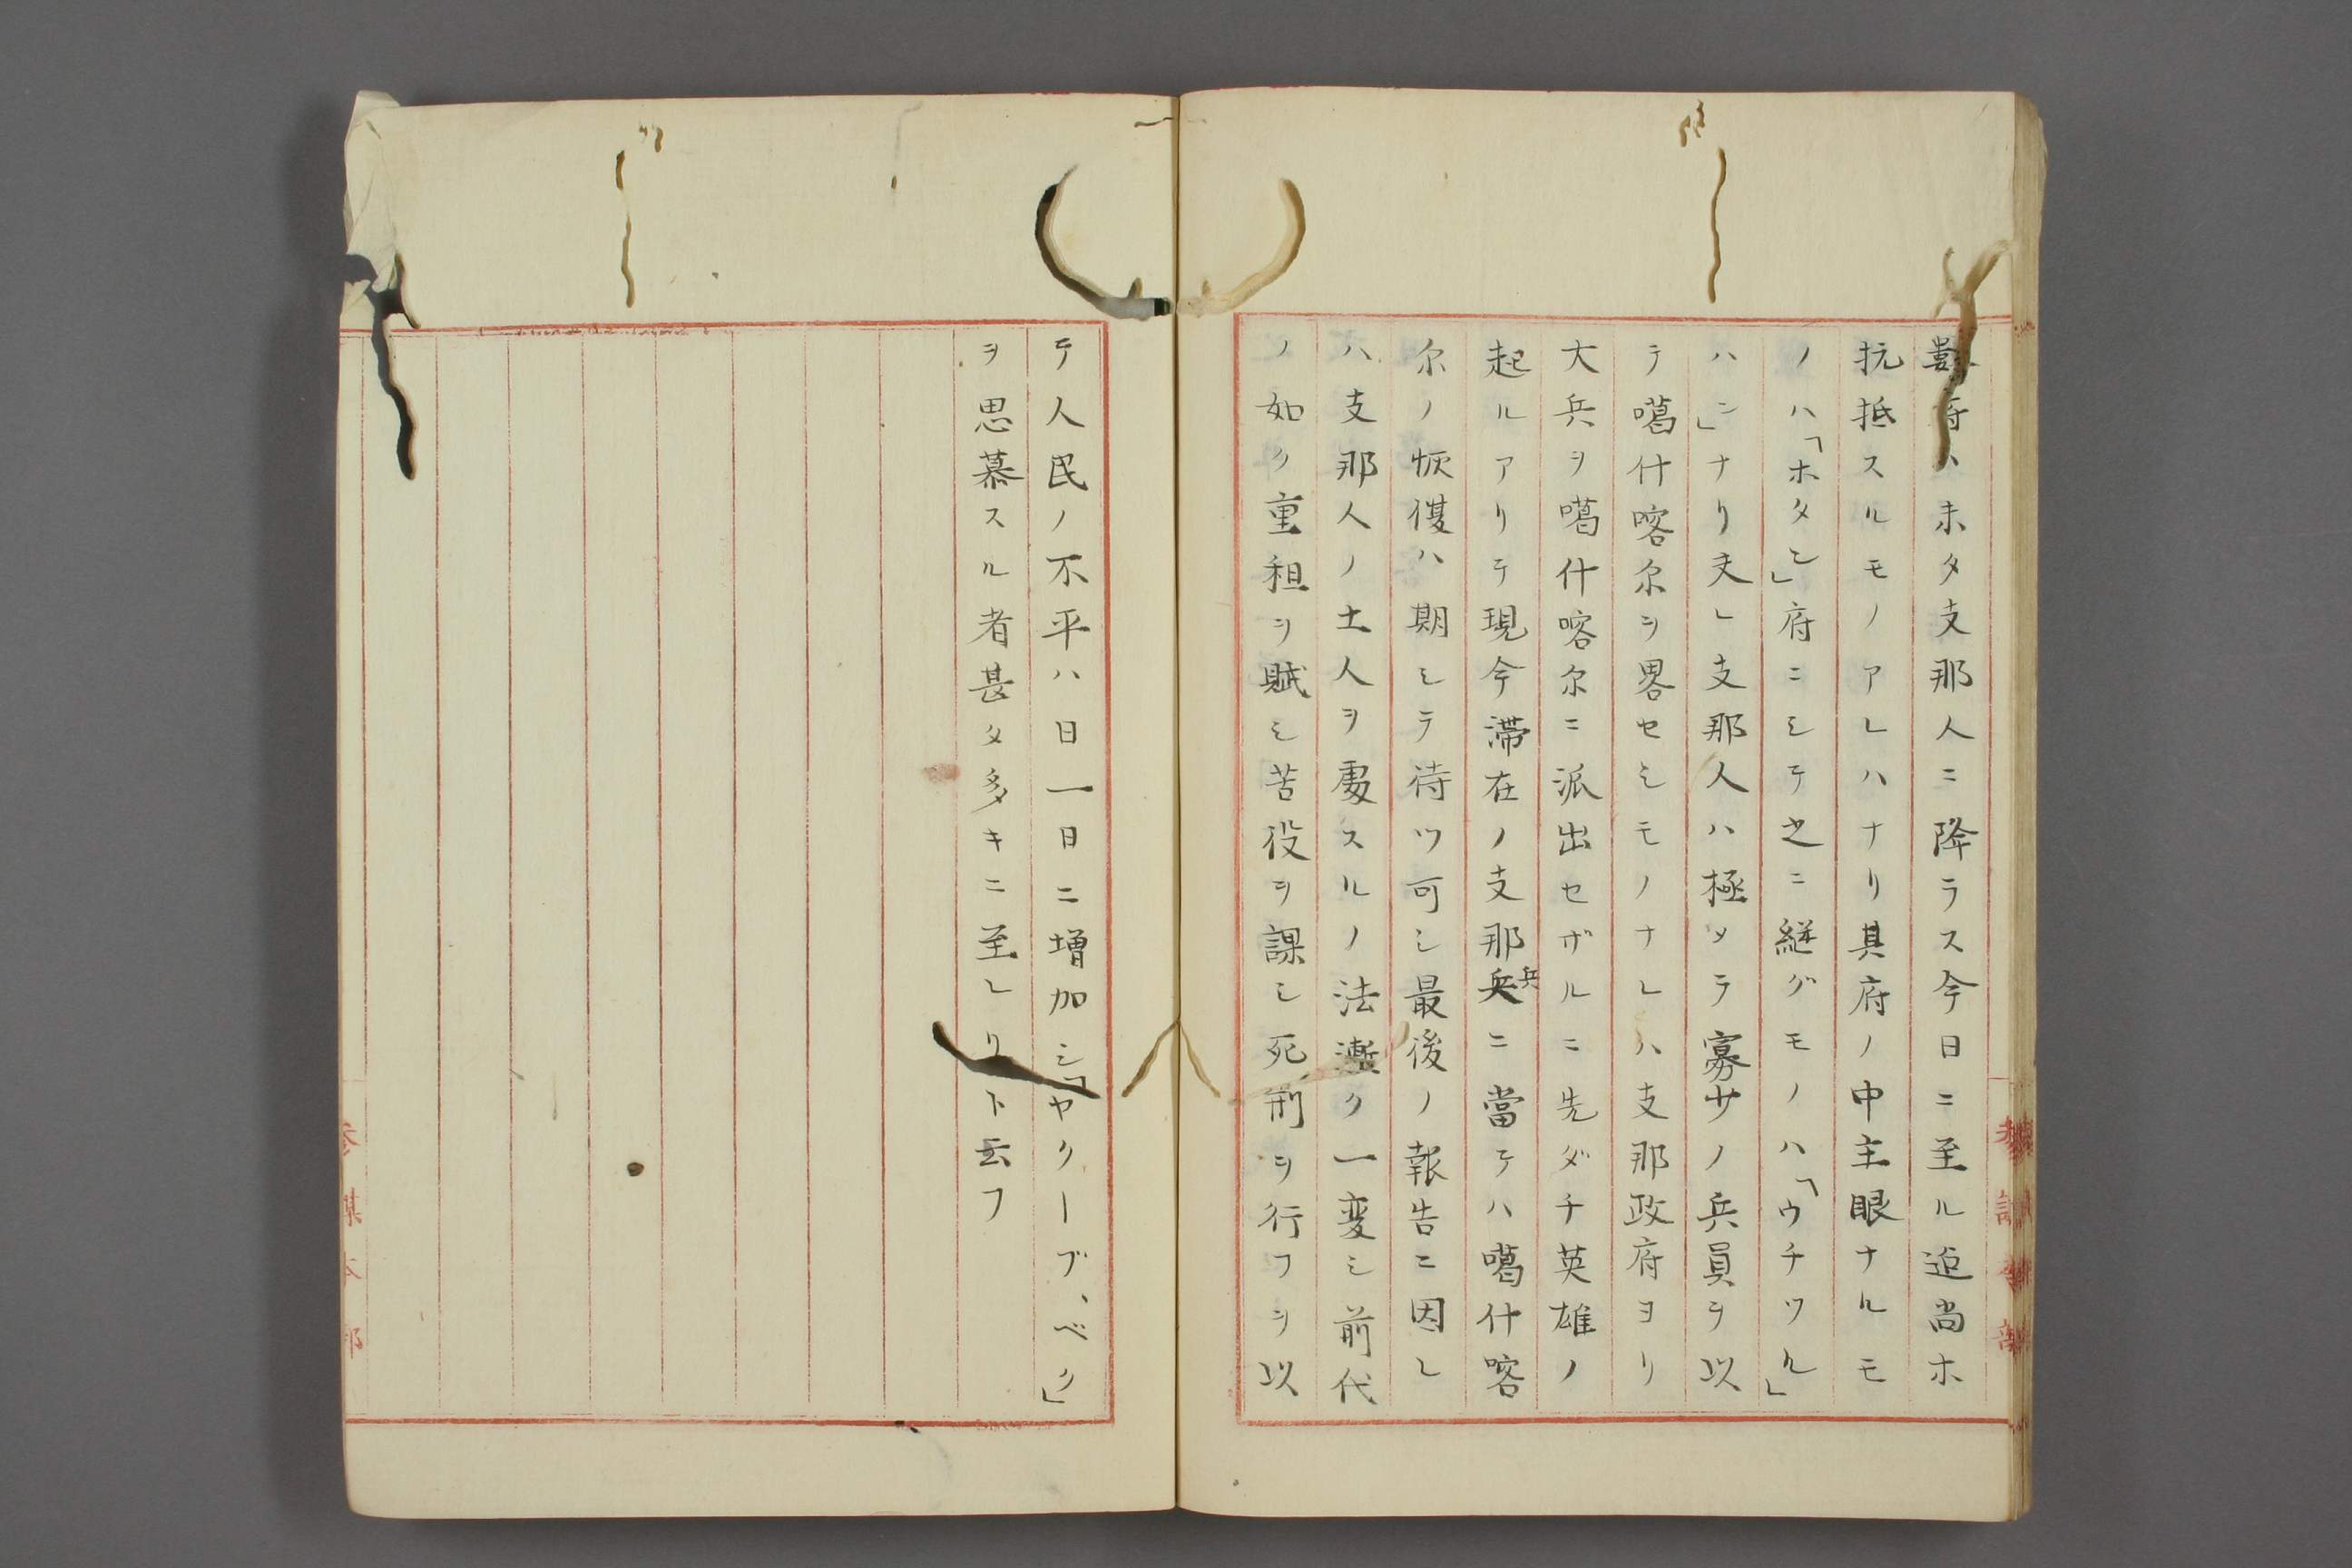 數府ハ未タ支那人ニ降ラス今日ニ至ル迠尚ホ
抗抵スルモノアレハナリ其府ノ中主眼ナルモ
ノハ「ホタン」府ニシテ之ニ継グモノハ「ウチツル」
ハン」ナリ夫レ支那人ハ極メテ寡少ノ兵員ヲ以
テ噶什喀尔ヲ畧セシモノナレハ支那政府ヨリ
大兵ヲ噶什喀尔ニ派出セザルニ先ダチ英雄ノ
起ルアリテ現今滞在ノ支那兵兵ニ當テハ噶什喀
尔ノ恢復ハ期シテ待ツ可シ最後ノ報告ニ因レ
ハ支那人ノ土人ヲ處スルノ法漸ク一変シ前代
ノ如ク重租ヲ賦シ苦役ヲ課シ死刑ヲ行フヲ以
テ人民ノ不平ハ日一日ニ増加シ「ヤクーブ、ベク」
ヲ思慕スル者甚タ多キニ至レリト云フ
参謀本部